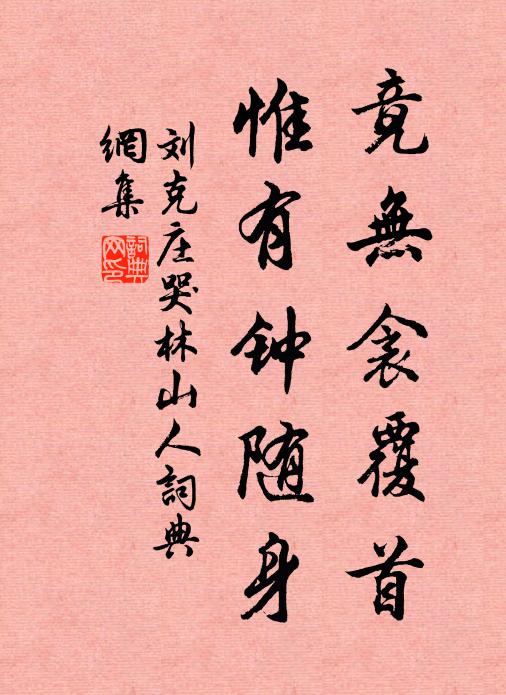 竟無衾覆首
惟有钟随身
刘克庄哭林山人詞典
網集
詞典网印